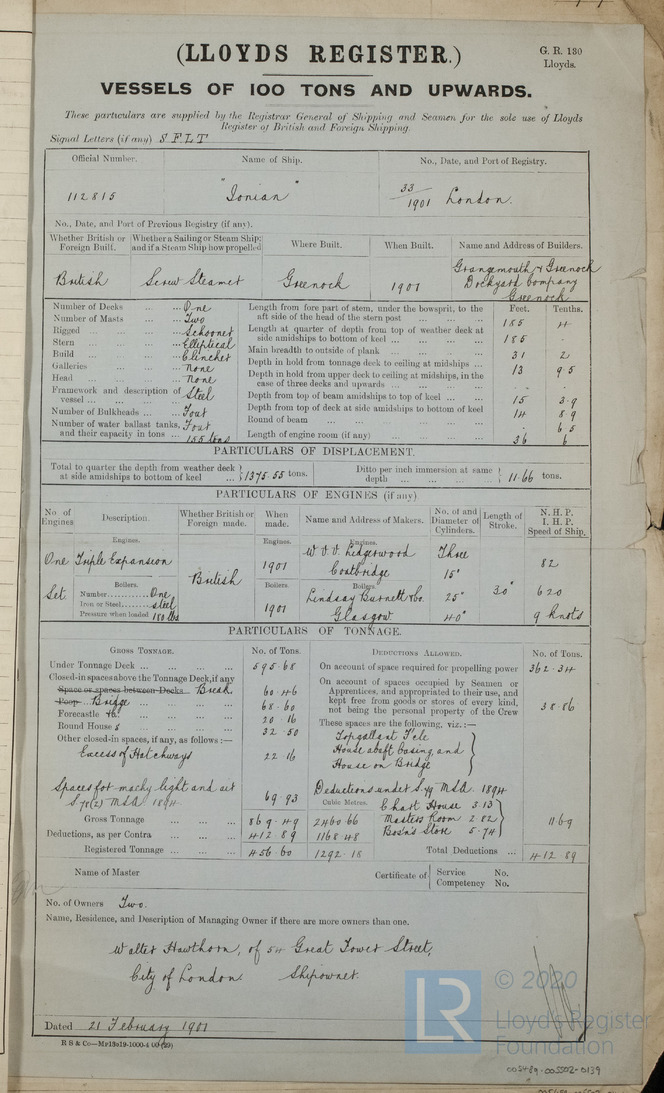 (LLOYDS REGISTER.)
G. R. 130
Lloyds.
VESSELS OF 100 TONS AND UPWARDS.
These particulars are supplied by the Registrar General of Shipping and Seamen for the sole use of Lloyds
Register of British and Foreign Shipping.
Signal Letters (if any) S F L T
Official Number. Name of Ship. No., Date, and Port of Registry.
112815 "Ionian" 33/1901 London.
No., Date, and Port of Previous Registry (if any).
Whether British or Foreign Built. Whether a Sailing or Steam Ship; and if a Steam Ship how propelled Where Built. When Built. Name and Address of Builders.
British Screw Steamer Greenock 1901 Grangemouth & Greenock
Dockyard Company
Greenock
Number of Decks ... ... One
Number of Masts ... ... Two
Rigged ... ... ... Schooner
Stern ... ... ... Elliptical
Build ... ... ... Clincher
Galleries ... ... None
Head ... ... ... None
Framework and description of vessel ... ... ... Steel
Number of Bulkheads ... ... Four
Number of water ballast tanks, and their capacity in tons ... Four
155 tons
Feet. Tenths.
Length from fore part of stem, under the bowsprit, to the
aft side of the head of the stern post ... ... ... 185 4
Length at quarter of depth from top of weather deck at
side amidships to bottom of keel ... ... ... ... 185 .
Main breadth to outside of plank ... ... ... ... 31 2
Depth in hold from tonnage deck to ceiling at midships ... 13 9.5
Depth in hold from upper deck to ceiling at midships, in the
case of three decks and upwards ... ... ... ... . .
Depth from top of beam amidships to top of keel ... ... 15 3.9
Depth from top of deck at side amidships to bottom of keel 14 8.9
Round of beam ... ... ... ... ... . 6 5
Length of engine room (if any) ... ... ... ... 36 6
PARTICULARS OF DISPLACEMENT.
Total to quarter the depth from weather deck
at side amidships to bottom of keel ... } 1375.55 tons.
Ditto per inch immersion at same
depth ... ... ... } 11.66 tons.
PARTICULARS OF ENGINES (if any).
No. of Engines Description. Whether British or Foreign made. When made. Name and Address of Makers. No. of and Diameter of Cylinders. Length of Stroke. N. H. P. I. H. P. Speed of Ship.
Engines. Engines. Engines.
One Triple Expansion 1901 W. V. V. Lidgerwood Three 82
British Coatbridge 15"
Boilers. Boilers. Boilers.
Set Number........... One Lindsay Burnet & Co. 25" 30" 620
Iron or Steel........ steel
Pressure when loaded 180 lbs 1901 Glasgow 40" 9 knots
PARTICULARS OF TONNAGE.
GROSS TONNAGE. No. of Tons.
Under Tonnage Deck ... ... ... ... 595.68
Closed-in spaces above the Tonnage Deck, if any
Space or spaces between Decks Break. 60.46
Poop ... Bridge ... ... ... ... 68.60
Forecastle ... ... ... ... 20.16
Round Houses ... ... ... ... 32.50
Other closed-in spaces, if any, as follows :—
Excess of Hatchways 22.16
Spaces for machy light and air
S 78(2) MSA 1894 69.93
Gross Tonnage ... ... ... 869.49
Deductions, as per Contra ... ... ... 412.89
Registered Tonnage ... ... ... 456.60
Cubic Metres.
2460.66
1168.48
1292.18
DEDUCTIONS ALLOWED. No. of Tons.
On account of space required for propelling power 362.34
On account of spaces occupied by Seamen or
Apprentices, and appropriated to their use, and
kept free from goods or stores of every kind,
not being the personal property of the Crew 38.86
These spaces are the following, viz.:—
Topgallant Fcle
House abaft Casing and
House on Bridge
Deductions under S. 79 MSA. 1894
Chart House 3.13
Masters Room 2.82
Bosn's Store 5.74
11.69
Total Deductions ... 412.89
Name of Master
Certificate of { Service No.
Competency No.
No. of Owners Two.
Name, Residence, and Description of Managing Owner if there are more owners than one.
Walter Hawthorn, of 54 Great Tower Street,
City of London. Shipowner.
Dated 21 February 1901
R S & Co—
LR
© 2020
Lloyd's Register
Foundation